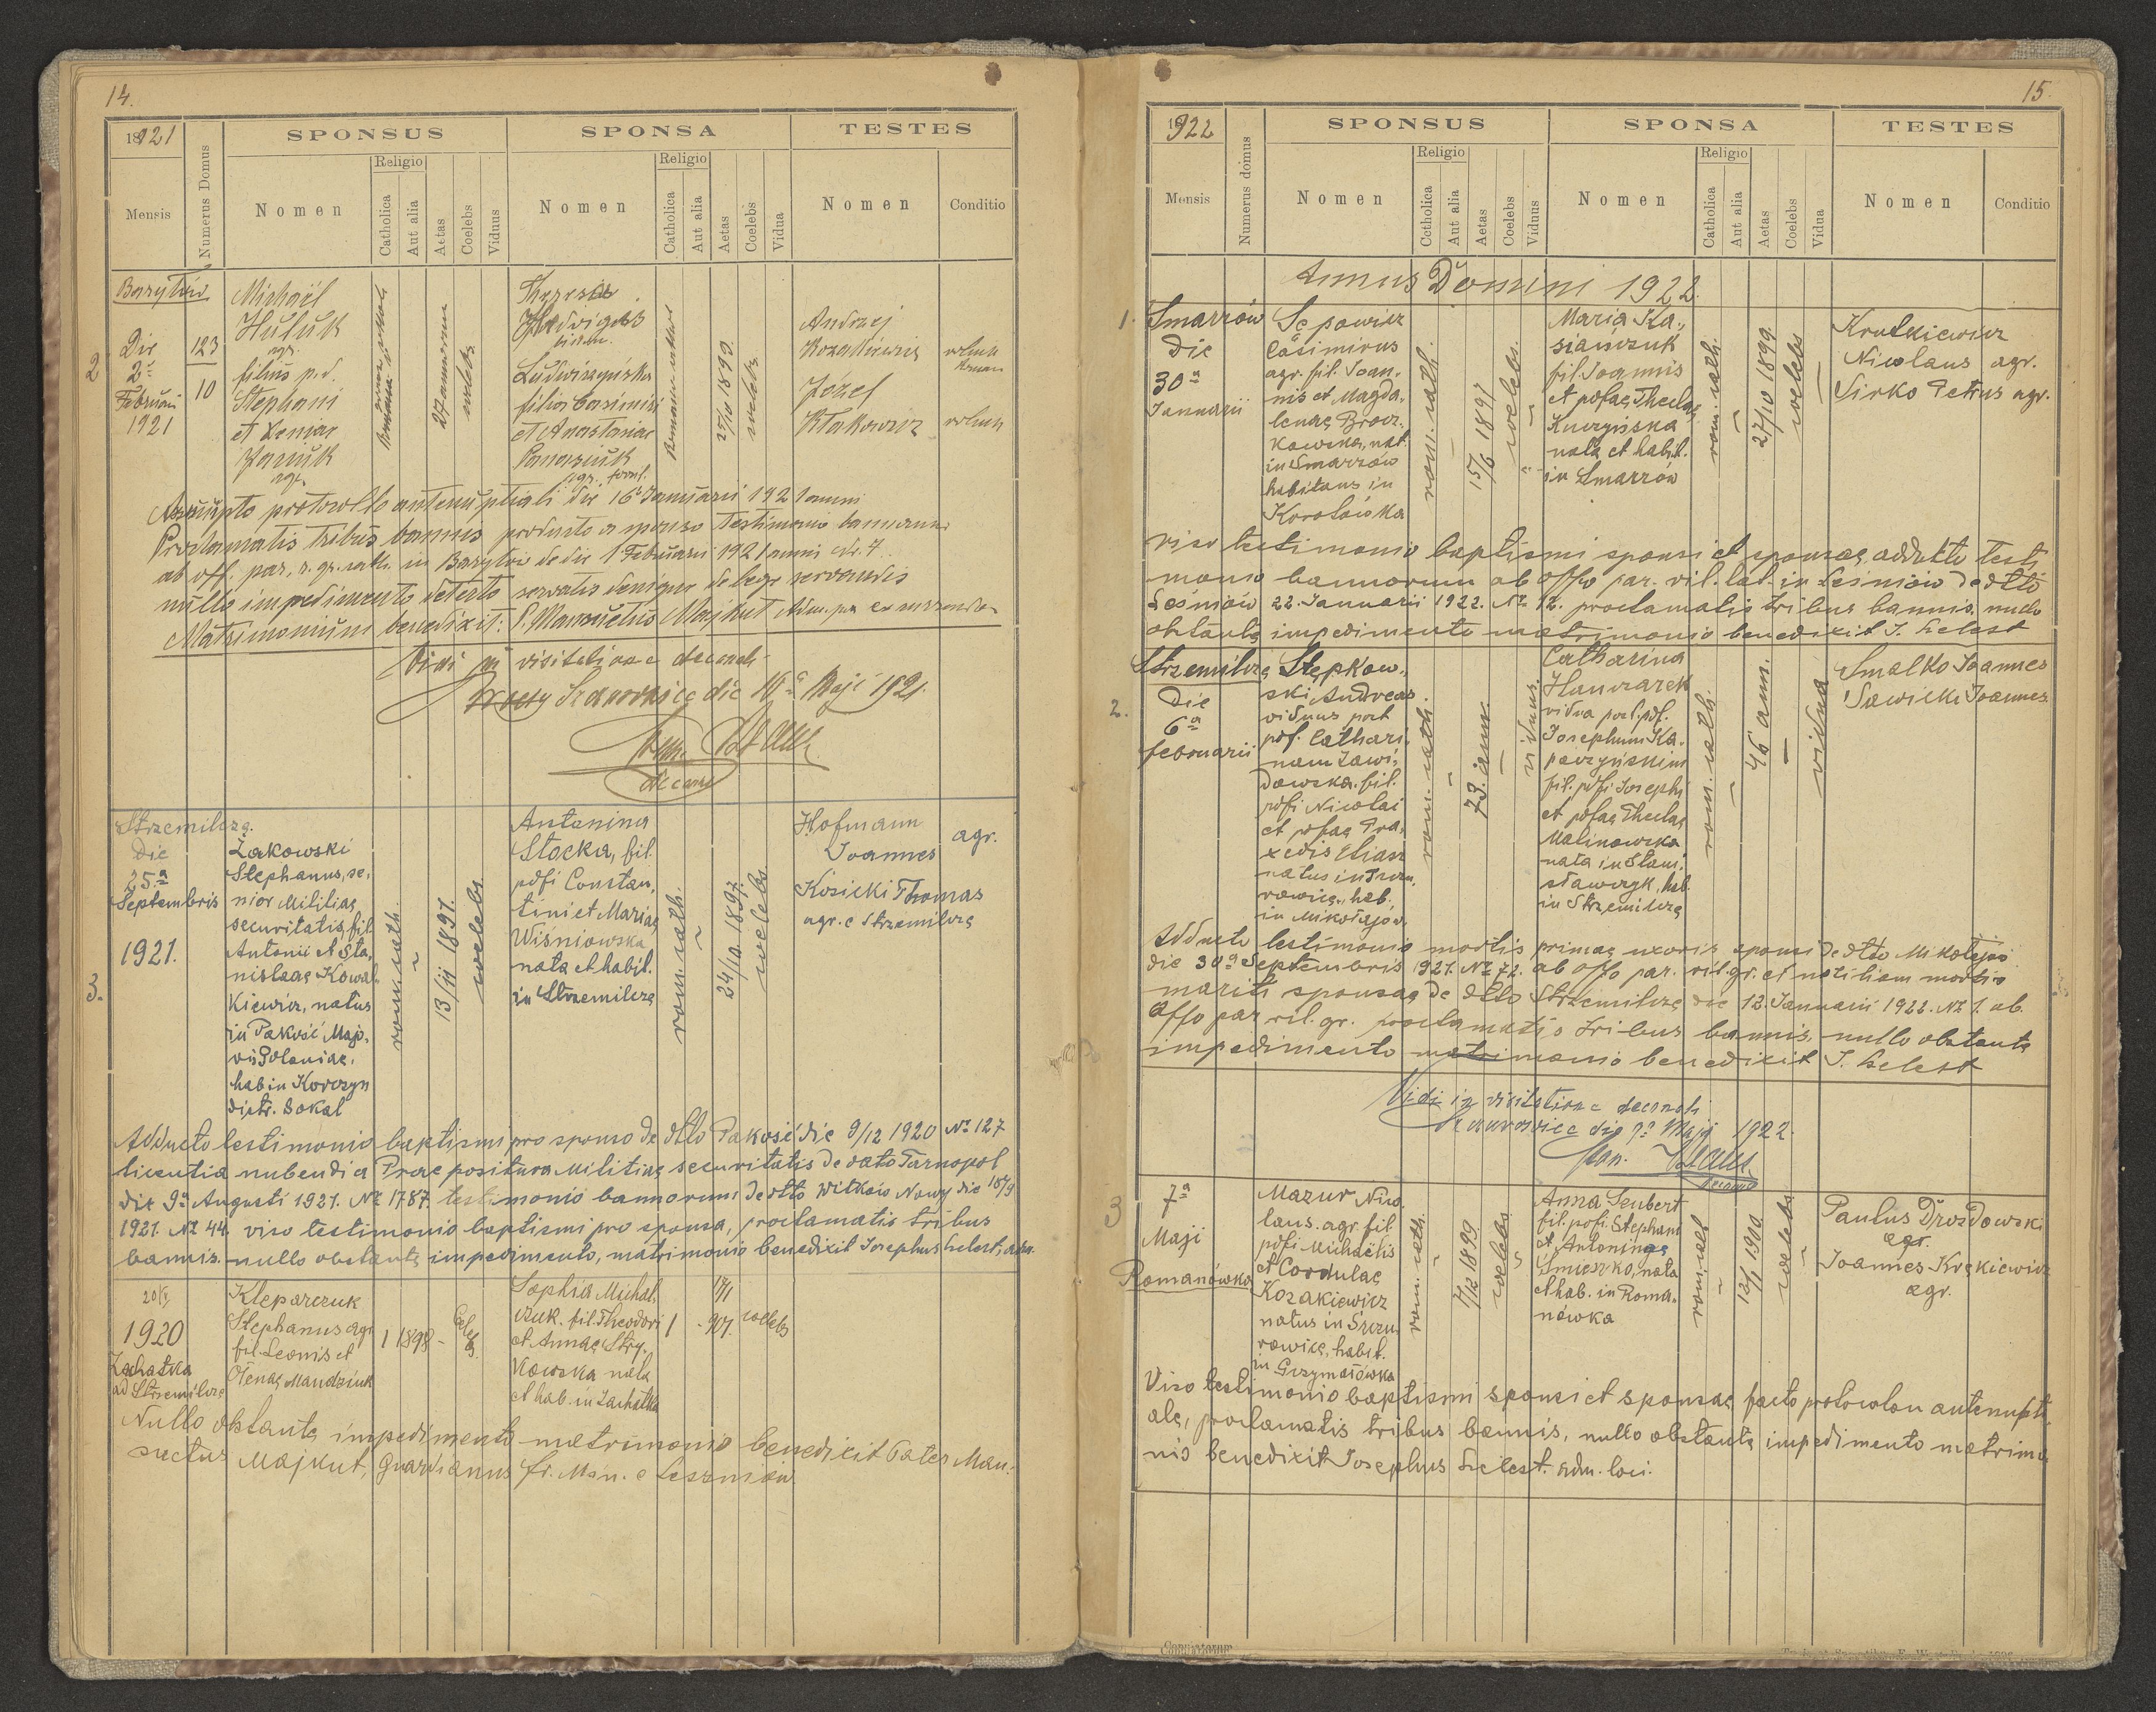 14.
1921
SPONSUS
SPONSA
TESTES
Mensis
Numerus Domus
Nomen
Religio
Catholica
Aut alia
Aetas
Coelebs
Viduus
Nomen
Religio
Catholica
Aut alia
Aetas
Coelebs
Vidua
Nomen
Conditio
2
Barytów
Die
2a
Februarii
1921
123
10
Michaël
Hułuk
agr.
filius p.d.
Stephani
et
agr.
27 annorum
coelebs
Theresia
Hedvigis
Ludwiczyńska
filia Casimiri
et Anastasiae
Panasiuk
agr.
27/10 1899.
coelebs
Andrzej
Józef
Assumpto protocollo antenuptiali die 16 Januarii 1921 anni
Proclamatis tribus bannis producto a sponso Testimonio bannorum
ab off. par. r. gr. cath. in Barytów de die 1 Februarii 1921 anni No. 7.
nullo impedimento detecto servatis denique de lege servandis
Matrimonium benedixit: P. Mansuetus Majkut Adm.
Vidi in visitatione decanali
Szczurowice die 16a Maji 1921.
decanus
3.
Strzemilcze.
Die
25a
Septembris
1921.
Żakowski
Stephanus, se-
nior Militiae
securitatis, fil.
Antonii et Sta-
nislaae Kowal-
kiewicz, natus
in Pakość Majo-
ris Poloniae,
hab in Korczyn
distr. Sokal
rom. cath.
13/11 1897.
coelebs
Antonina
Stocka, fil.
pdfi Constan-
tini et Mariae
Wiśniowska
nata et habit.
in Strzemilcze
rom. cath.
24/10 1897.
coelebs
Hofmann
Joannes
agr.
Kosicki Thomas
agr. e Strzemilcze
Adducto testimonio baptismi pro sponso de dtto Pakość die 9/12 1920 No 127
licentia nubendi a Praepositura Militiae securitatis de dato Tarnopol
die 9a Augusti 1921. No 1787. testimonio bannorum de dtto Witków Nowy die 18/9
1921. No 44. viso testimonio baptismi pro sponsa, proclamatis tribus
bannis. nullo obstante impedimento, matrimonio benedixit Josephus Szelest, adm.
20/
1920
Lachatka
ad Strzemilcze
Kleparczuk
Stephanus agr.
fil. Leonis et
Olenae Mandziuk
1 1898 -
Coelebs
Sophia Michal-
czuk. fil. Theodori
et Annae Stry-
kowska nata
et hab. in Lachatka
1 -
17/1
907.
coelebs
Nullo obstante impedimento matrimonio benedixit Pater Man-
suetus Majkut, Guardianus fr. Min. e Leszniów.
15.
1922
SPONSUS
SPONSA
TESTES
Mensis
Numerus domus
Nomen
Religio
Cctholica
Aut alia
Aetas
Coelebs
Viduus
Nomen
Religio
Catholica
Aut alia
Aetas
Coelebs
Vidua
Nomen
Conditio
Annus Domini 1922.
1.
Smarzów
Die
30a
Januarii
Sępowicz
Casimirus
agr. fil. Joan-
nis et Magda-
lenae Brocz-
kowska, nat.
in Smarzów
habitans in
Korolówka
rom. cath.
15/6 1897
coelebs.
Maria Ka-
siańczuk
fil. Joannis
et pdfae Theclae
Kuczyńska
nata et habit.
in Smarzów
rom. cath.
27/10 1899
coelebs
Krutkiewicz
Nicolaus agr.
Sirko Petrus agr.
Viso testimonio baptismi sponsi et sponsae, adducto testi-
monio bannorum ab offo par. rit. lat. in Leśniów de dtto
Leśniów 22. Januarii 1922. No 12. proclamatis tribus bannis. nullo
obstante impedimento matrimonio benedixit J. Szelest
2.
Strzemilcze
Die
6a
Februarii
Stępkow-
ski Andreas
viduus post
pdf. Cathari-
nam Zawi-
dowska. fil.
pdfi Nicolai
et pdfae Pra-
xedis Eliasz
natus in Szczu-
rowice, hab.
in Mikołajów
rom. cath.
73. ann.
viduus.
Catharina
Hawrarek
vidua post. pdf.
Josephum Ka-
parzyńskim
fil. pdfi Josephi
et pdfae Theclae
Malinowska
nata in Stani-
sławczyk, hab.
in Strzemilcze
rom. cath.
46 ann.
vidua
Smalko Joannes
Sawicki Joannes
Adducto testimonio mortis primae uxoris sponsi de dtto Mikołajów
die 30a Septembris 1921. No 72. ab offo par. rit. gr. et notitiam mortis
mariti sponsae de dtto Strzemilcze die 12. Januarii 1922. No 1. ab
Offo par rit. gr. proclamatis tribus bannis, nullo obstante
impedimento matrimonio benedixit J. Szelest
Vidi in visitatione decanali
Szczurowice die 9a Maji 1922.
decanus
3
7a
Maji
Romanówka
Mazur Nico-
laus. agr. fil.
pdfi Michaëlis
et Cordulae
Kozakiewicz
natus in Szczu-
rowice, habit.
in Grzymałówka
rom. cath.
7/12 1899
coelebs
Anna Seubert
fil. pdfi. Stephani
et Antoninae
Śmieszko, nata
et hab. in Roma-
nówka
rom. cath
13/1 1900
coelebs
Paulus Drozdowski
agr.
Joannes Krękiewicz
agr.
Viso testimonio baptismi sponsi et sponsae, facto protocolon antenupti-
ale, proclamatis tribus bannis, nullo obstante impedimento matrimo-
nio benedixit Josephus Szelest. adm. loci.